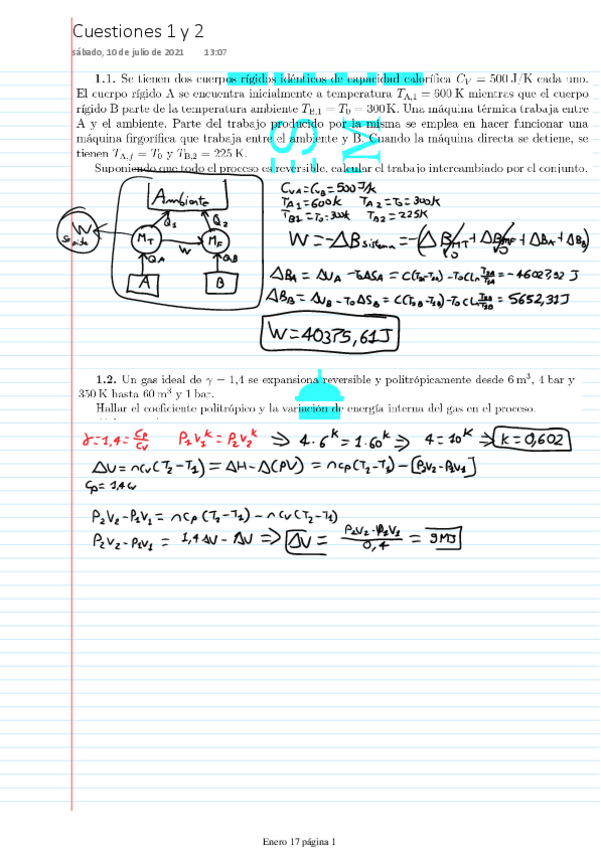 Cuestiones 1 y 2
sábado, 10 de julio de 2021 13:07
1.1. Se tienen dos cuerpos rígidos idénticos de capacidad calorífica C_V = 500 J/K cada uno.
El cuerpo rígido A se encuentra inicialmente a temperatura T_A,1 = 600 K mientras que el cuerpo
rígido B parte de la temperatura ambiente T_B,1 = T_0 = 300 K. Una máquina térmica trabaja entre
A y el ambiente. Parte del trabajo producido por la misma se emplea en hacer funcionar una
máquina firgorífica que trabaja entre el ambiente y B. Cuando la máquina directa se detiene, se
tienen T_A,f = T_0 y T_B,2 = 225 K.
Suponiendo que todo el proceso es reversible, calcular el trabajo intercambiado por el conjunto.
Ambiente
Q1 Q2
W
MT W MF
QA QB
A B
CVA = CB = 500 J/K
TA1 = 600K TA2 = T0 = 300K
TB1 = T0 = 300K TB2 = 225K
W = -ΔB sistema = -(ΔB MT + ΔB MF + ΔBA + ΔBB)
0 0
ΔBA = ΔUA - T0ΔSA = C(TA2-TA1) - T0 C Ln TA2/TA1 = -46027,92 J
ΔBB = ΔUB - T0ΔSB = C(TB2-TB1) - T0 C Ln TB2/TB1 = 5652,31 J
W = 40375,61 J
1.2. Un gas ideal de γ = 1,4 se expansiona reversible y politrópicamente desde 6 m³, 4 bar y
350 K hasta 60 m³ y 1 bar.
Hallar el coeficiente politrópico y la variación de energía interna del gas en el proceso.
γ = 1,4 = Cp/Cv P1V1^k = P2V2^k ⇒ 4·6^k = 1·60^k ⇒ 4 = 10^k ⇒ k = 0,602
ΔU = nCv(T2-T1) = ΔH - Δ(PV) = nCp(T2-T1) - [P2V2 - P1V1]
Cp = 1,4 Cv
P2V2 - P1V1 = nCp(T2-T1) - nCv(T2-T1)
P2V2 - P1V1 = 1,4 ΔU - ΔU ⇒ ΔU = P2V2 - P1V1 / 0,4 = 9 MJ
Enero 17 página 1